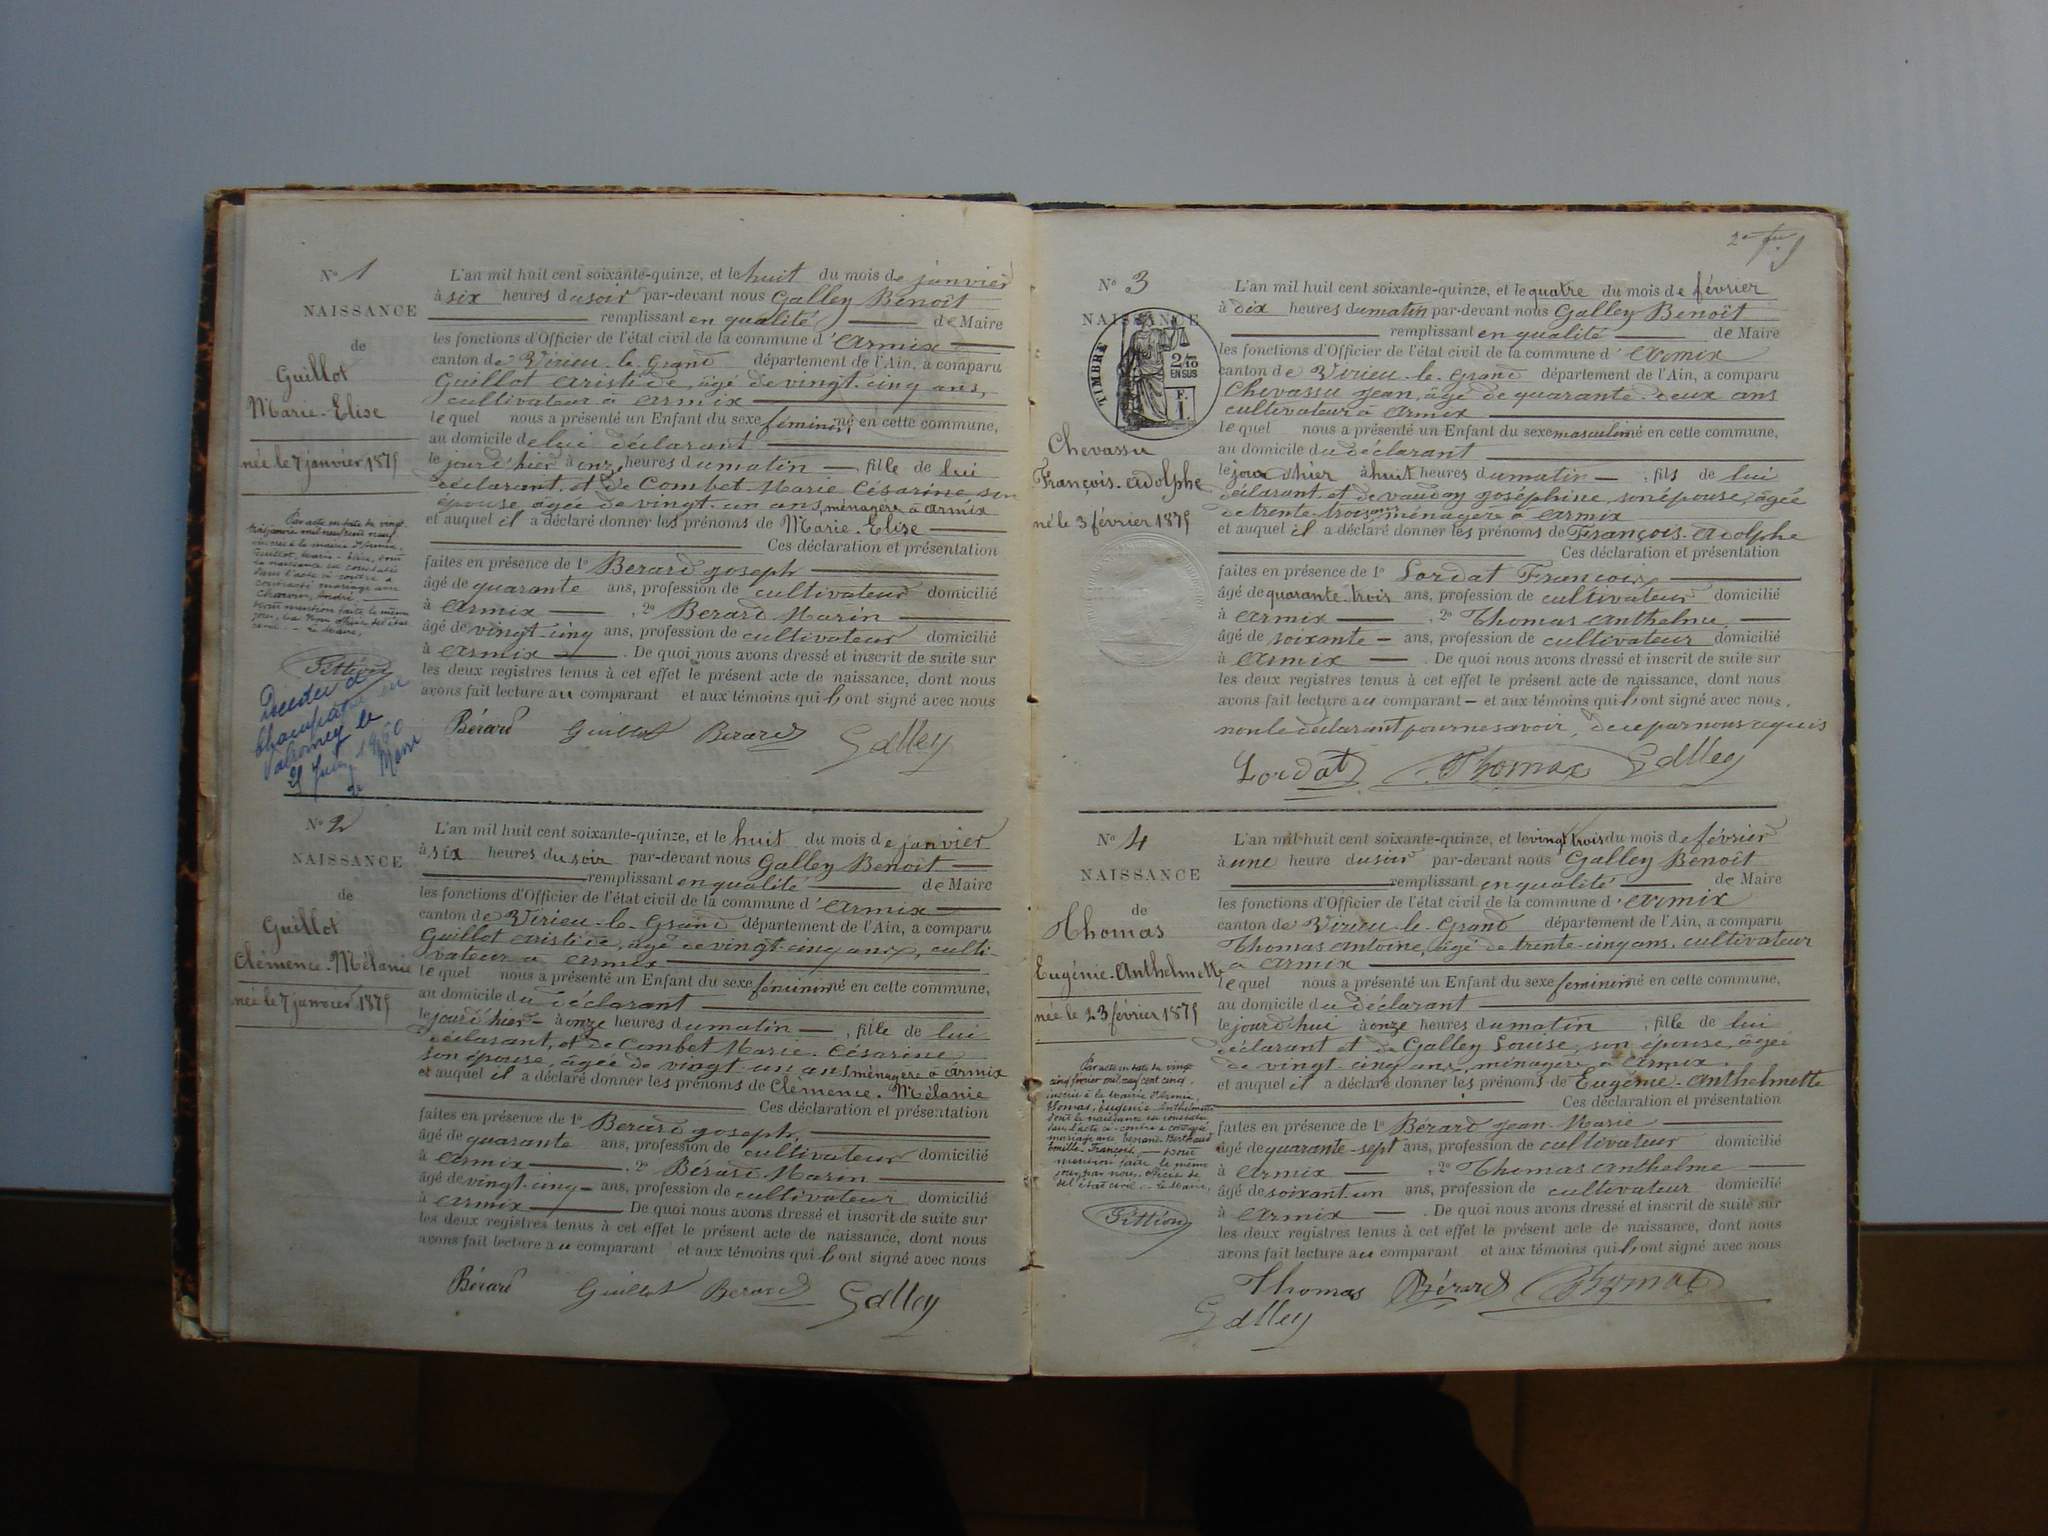 No 1
NAISSANCE
de
Guillot
Marie-Elise
née le 7 janvier 1875
Par acte en date du vingt
janvier mil neuf cent neuf
inscrit à la mairie d'Armix,
Guillot, Marie-Elise, dont
la naissance est constatée
dans l'acte ci-contre a
contracté mariage avec
Charvin, André.
Dont mention faite le même
jour, par Nous officier de l'état
civil. - Le Maire,
Pittion
Décédée à
Champagne en
Valromey le
21 1960
L'an mil huit cent soixante-quinze, et le huit du mois de janvier
à six heures du soir par-devant nous Galley Benoît
remplissant en qualité de Maire
les fonctions d'Officier de l'état civil de la commune d'Armix
canton de Virieu-le-Grand département de l'Ain, a comparu
Guillot Aristide, âgé de vingt-cinq ans,
cultivateur à Armix
lequel nous a présenté un Enfant du sexe féminin, né en cette commune,
au domicile de lui déclarant
le jour d'hier à onze heures du matin , fille de lui
déclarant, et de Combet Marie Césarine son
épouse, âgée de vingt-un ans, ménagère à Armix
et auquel il a déclaré donner les prénoms de Marie-Elise
Ces déclaration et présentation
faites en présence de 1º Berard Joseph
âgé de quarante ans, profession de cultivateur domicilié
à Armix , 2º Berard Marin
âgé de vingt-cinq ans, profession de cultivateur domicilié
à Armix . De quoi nous avons dressé et inscrit de suite sur
les deux registres tenus à cet effet le présent acte de naissance, dont nous
avons fait lecture au comparant et aux témoins qui l'ont signé avec nous
Bérard Guillot Berard Galley
No 2
NAISSANCE
de
Guillot
Clémence-Mélanie
née le 7 janvier 1875
L'an mil huit cent soixante-quinze, et le huit du mois de janvier
à six heures du soir par-devant nous Galley Benoît
remplissant en qualité de Maire
les fonctions d'Officier de l'état civil de la commune d'Armix
canton de Virieu-le-Grand département de l'Ain, a comparu
Guillot Aristide, âgé de vingt-cinq ans, culti-
vateur à Armix
lequel nous a présenté un Enfant du sexe féminin né en cette commune,
au domicile du déclarant
le jour d'hier à onze heures du matin , fille de lui
déclarant, et de Combet Marie-Césarine
son épouse, âgée de vingt-un ans ménagère à Armix
et auquel il a déclaré donner les prénoms de Clémence-Mélanie
Ces déclaration et présentation
faites en présence de 1º Berard Joseph,
âgé de quarante ans, profession de cultivateur domicilié
à Armix , 2º Bérard Marin
âgé de vingt-cinq ans, profession de cultivateur domicilié
à Armix De quoi nous avons dressé et inscrit de suite sur
les deux registres tenus à cet effet le présent acte de naissance, dont nous
avons fait lecture au comparant et aux témoins qui l'ont signé avec nous
Bérard Guillot Berard Galley
No 3
NAISSANCE
TIMBRE
2/10
EN SUS
F.
1.
Chevassu
François-Adolphe
né le 3 février 1875
L'an mil huit cent soixante-quinze, et le quatre du mois de février
à dix heures du matin par-devant nous Galley Benoît
remplissant en qualité de Maire
les fonctions d'Officier de l'état civil de la commune d'Armix
canton de Virieu-le-Grand département de l'Ain, a comparu
Chevassu Jean, âgé de quarante-deux ans
cultivateur à Armix
lequel nous a présenté un Enfant du sexe masculin né en cette commune,
au domicile du déclarant
le jour d'hier à huit heures du matin , fils de lui
déclarant et de Vauday Joséphine, son épouse, âgée
de trente-trois ans, ménagère à Armix
et auquel il a déclaré donner les prénoms de François-Adolphe
Ces déclaration et présentation
faites en présence de 1º Lordat François
âgé de quarante-trois ans, profession de cultivateur domicilié
à Armix , 2º Thomas Anthelme
âgé de soixante ans, profession de cultivateur domicilié
à Armix . De quoi nous avons dressé et inscrit de suite sur
les deux registres tenus à cet effet le présent acte de naissance, dont nous
avons fait lecture au comparant et aux témoins qui l'ont signé avec nous,
non le déclarant pour ne savoir, de ce par nous requis
Lordat Thomas Galley
No 4
NAISSANCE
de
Thomas
Eugénie-Anthelmette
née le 23 février 1875
Par acte en date du vingt
cinq février mil neuf cent cinq,
inscrit à la Mairie d'Armix,
Thomas, Eugénie Anthelmette
dont la naissance est constatée
dans l'acte ci-contre a contracté
mariage avec
François, Dont
mention faite le même
jour, par nous, officier de
de l'état civil. - Le Maire,
Pittion
L'an mil huit cent soixante-quinze, et le vingt trois du mois de février
à une heure du soir par-devant nous Galley Benoît
remplissant en qualité de Maire
les fonctions d'Officier de l'état civil de la commune d'Armix
canton de Virieu-le-Grand département de l'Ain, a comparu
Thomas Antoine, âgé de trente-cinq ans, cultivateur
à Armix
lequel nous a présenté un Enfant du sexe féminin né en cette commune,
au domicile du déclarant
le jourd'hui à onze heures du matin , fille de lui
déclarant et de Galley Louise, son épouse, âgée
de vingt-cinq ans, ménagère à Armix.
et auquel il a déclaré donner les prénoms de Eugénie-Anthelmette
Ces déclaration et présentation
faites en présence de 1º Bérard Jean-Marie
âgé de quarante-sept ans, profession de cultivateur domicilié
à Armix , 2º Thomas Anthelme
âgé de soixant un ans, profession de cultivateur domicilié
à Armix . De quoi nous avons dressé et inscrit de suite sur
les deux registres tenus à cet effet le présent acte de naissance, dont nous
avons fait lecture au comparant et aux témoins qui l'ont signé avec nous
Thomas Bérard Thomas
Galley